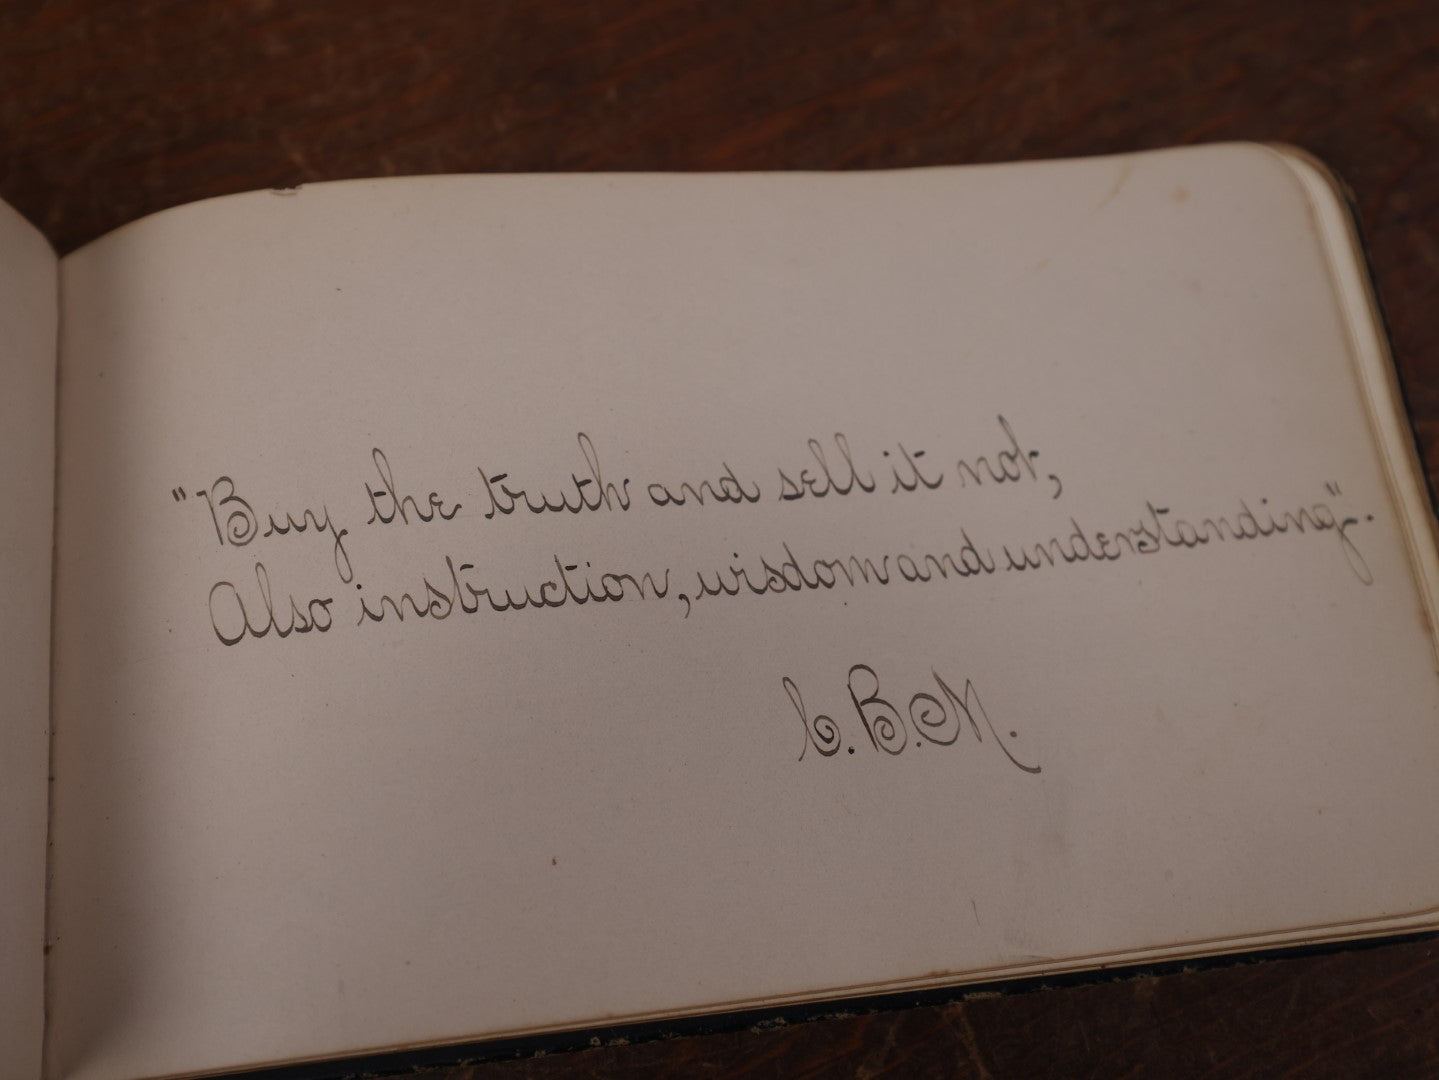 "Buy the truth and sell it not,
Also instruction, wisdom and understanding".
C.B.M.